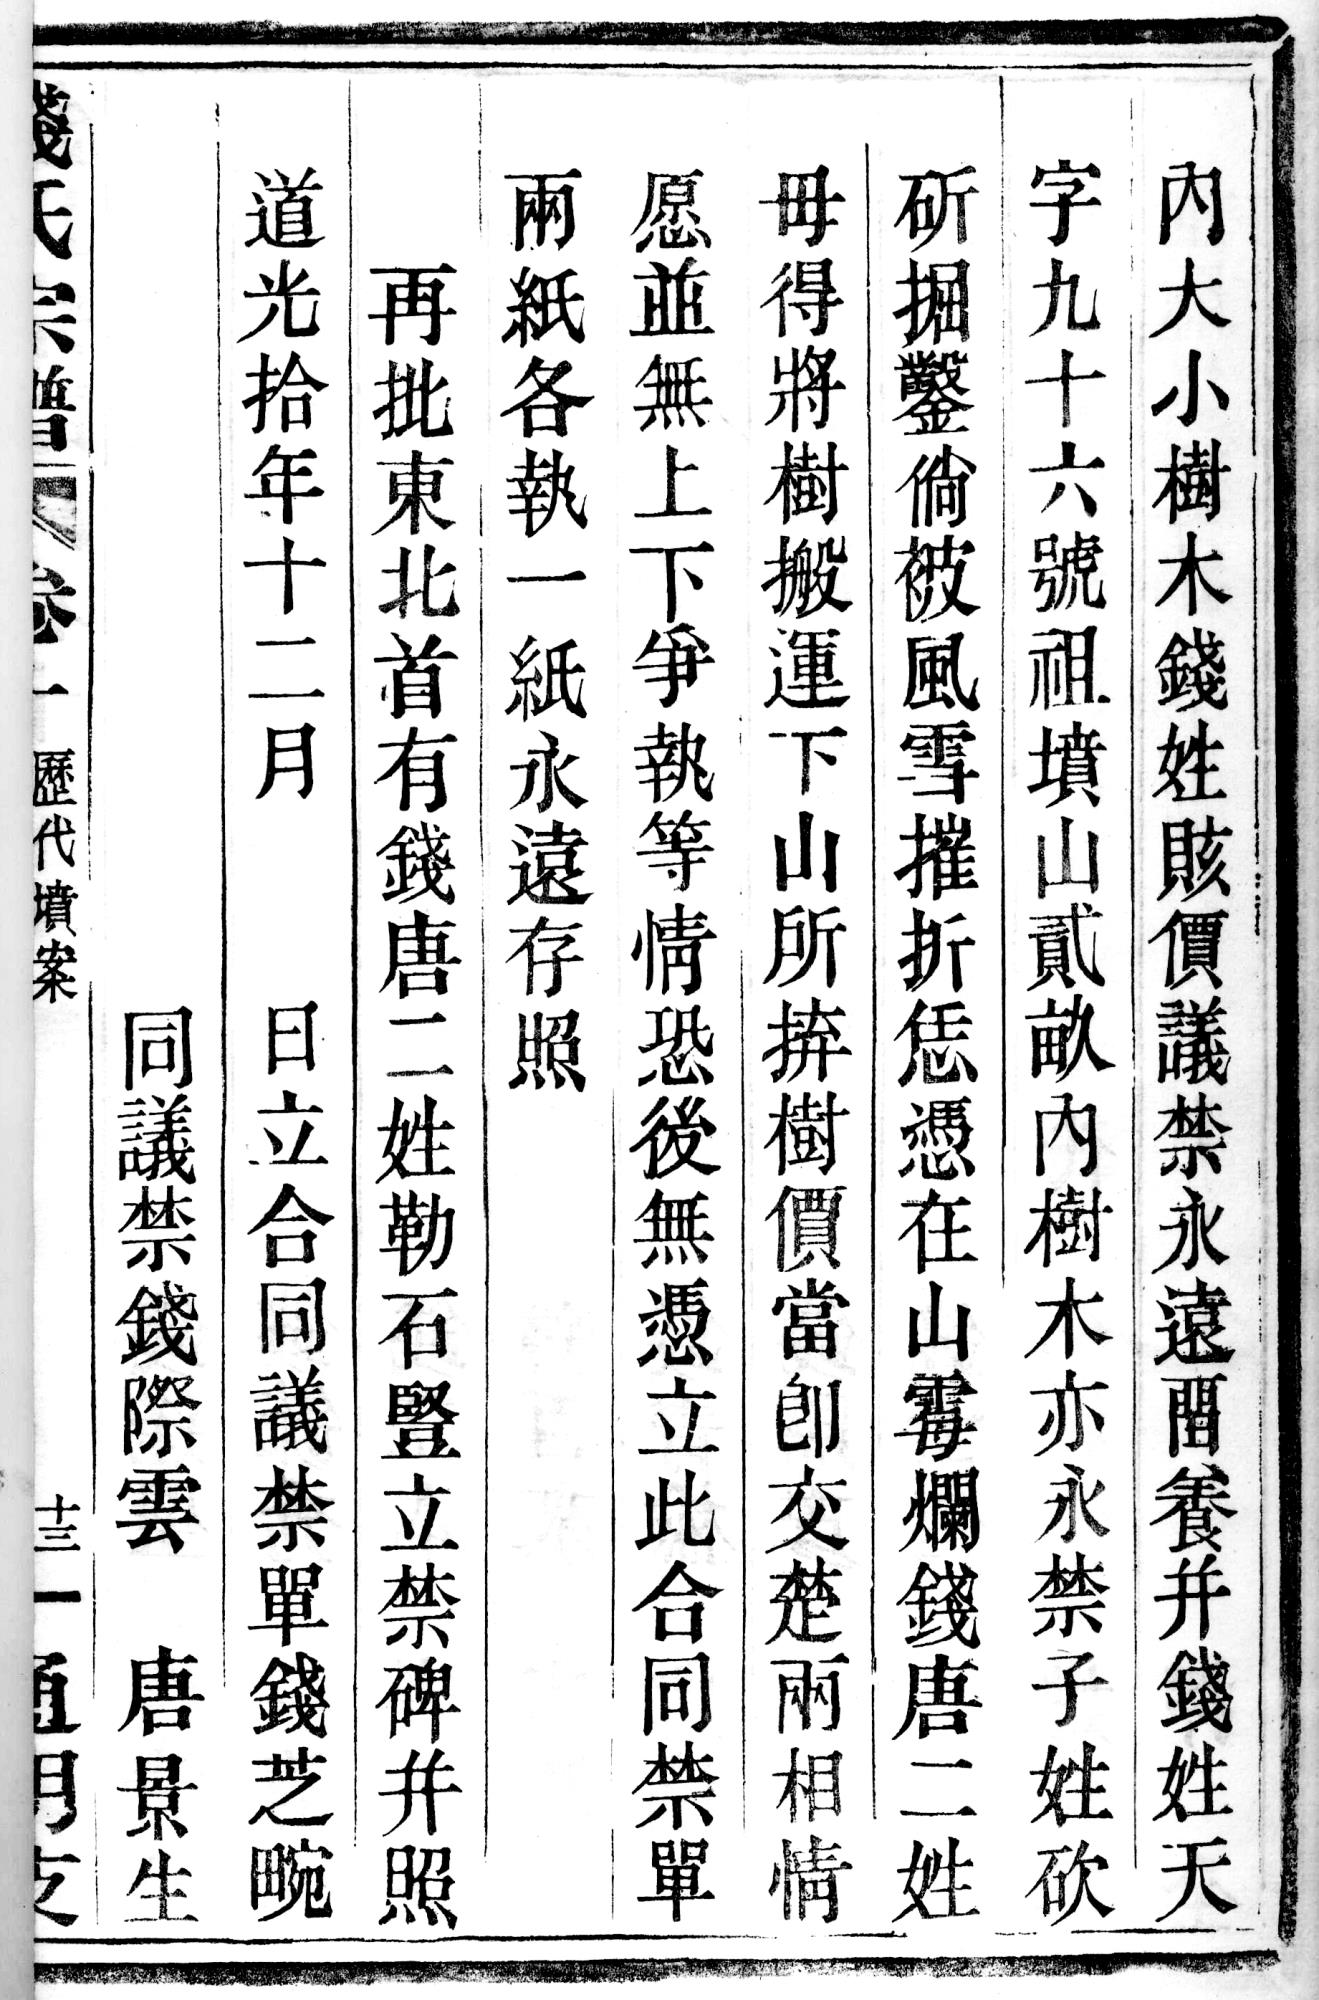 內大小樹木錢姓賅價議禁永遠畱養并錢姓天
字九十六號祖墳山貳畝內樹木亦永禁子姓砍
斫掘鑿倘被風雪摧折恁憑在山霉爛錢唐二姓
毋得將樹搬運下山所𢬵樹價當卽交楚兩相情
愿並無上下爭執等情恐後無憑立此合同禁單
兩紙各執一紙永遠存照
再批東北首有錢唐二姓勒石豎立禁碑幷照
道光拾年十二月 日立合同議禁單錢芝畹
同議禁錢際雲 唐景生
錢氏宗譜 卷一 歷代墳案 十三 通明支